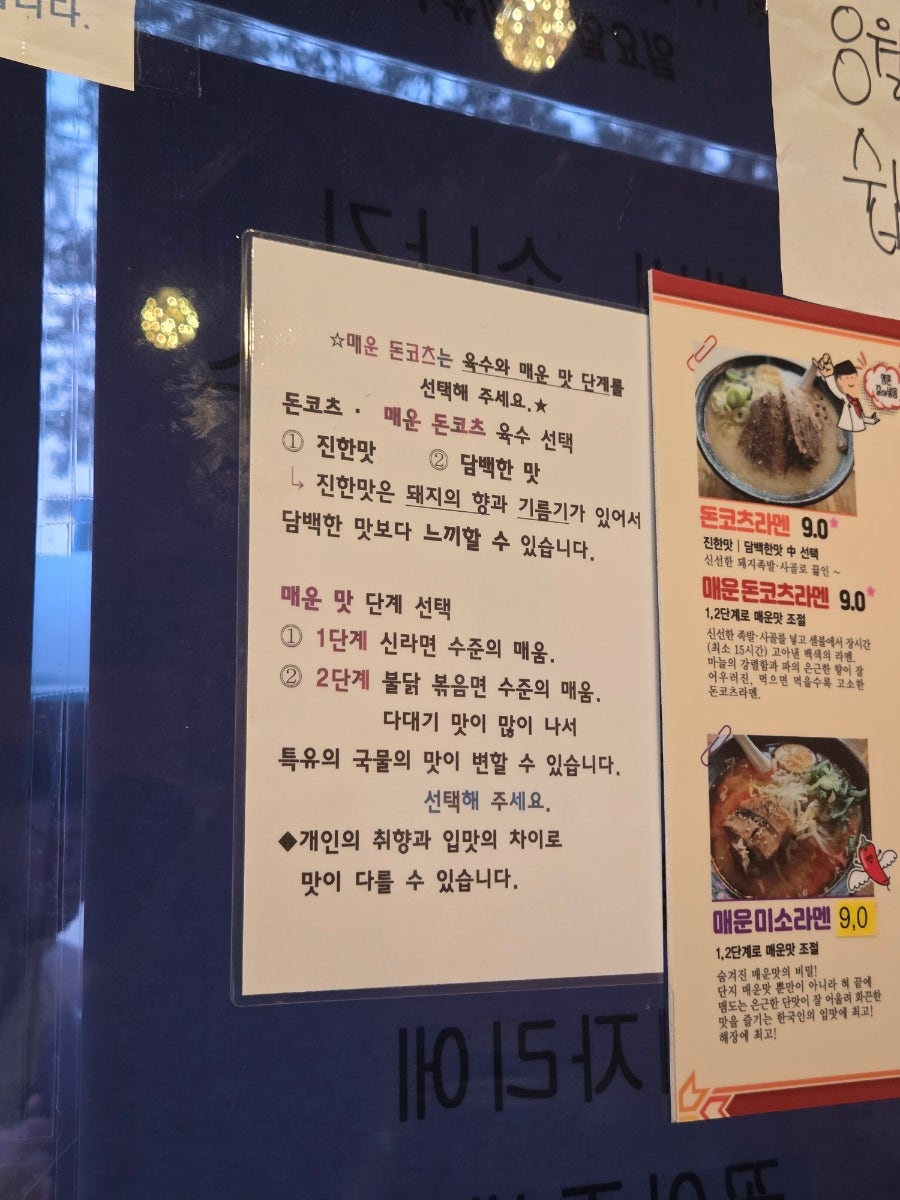 니다.
일요일
쉽
☆매운 돈코츠는 육수와 매운 맛 단계를
선택해 주세요.★
돈코츠 · 매운 돈코츠 육수 선택
① 진한맛 ② 담백한 맛
↳ 진한맛은 돼지의 향과 기름기가 있어서
담백한 맛보다 느끼할 수 있습니다.
매운 맛 단계 선택
① 1단계 신라면 수준의 매움.
② 2단계 불닭 볶음면 수준의 매움.
다대기 맛이 많이 나서
특유의 국물의 맛이 변할 수 있습니다.
선택해 주세요.
◆개인의 취향과 입맛의 차이로
맛이 다를 수 있습니다.
돈코츠라멘 9.0*
진한맛 | 담백한맛 中 선택
신선한 돼지족발·사골로 끓인 ~
매운돈코츠라멘 9.0*
1,2단계로 매운맛 조절
신선한 족발·사골을 넣고 센불에서 장시간
(최소 15시간) 고아낸 백색의 라멘.
마늘의 강렬함과 파의 은근한 향이 잘
어우러진, 먹으면 먹을수록 고소한
돈코츠라멘.
매운미소라멘 9,0
1,2단계로 매운맛 조절
숨겨진 매운맛의 비밀!
단지 매운맛 뿐만이 아니라 혀 끝에
맴도는 은근한 단맛이 잘 어울려 화끈한
맛을 즐기는 한국인의 입맛에 최고!
해장에 최고!
자리에